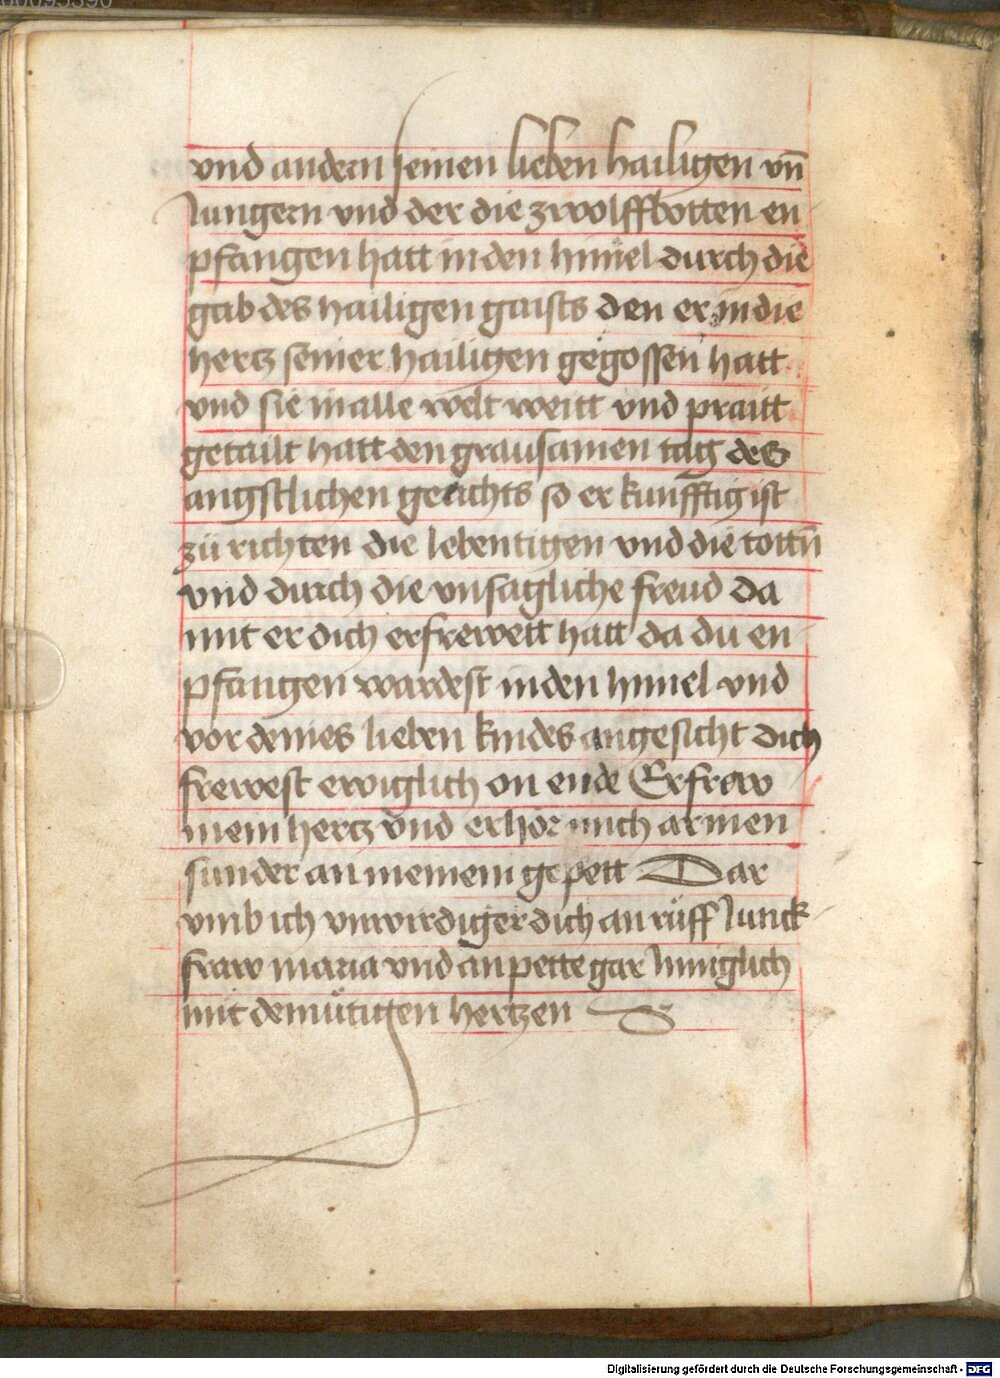 vnd andern seinen lieben hailigen vn̄
Jungern vnd der die zwolffbotten en
pfangen hatt in den himel durch die
gab des hailigen gaists den er in die
hertz seiner hailigen gegossen hatt
vnd sie in alle welt weitt vnd praitt
getailt hatt den grausamen tag des
angstlichen gerichts so er kunfftig ist
zů richten die lebentigen vnd die tottn̄
vnd durch die vnsagliche freud da
mit er dich erfrewett hatt da du en
pfangen wardest in den himel vnd
vor deines lieben kindes angesicht dich
frewest ewiglich on ende Erfrew
mein hertz vnd erhor mich armen
sunder an meinem gepett Dar
vmb ich vnwirdiger dich an růff Junck
fraw maria vnd an pette gar Inniglich
mit demůtigen hertzen
Digitalisierung gefördert durch die Deutsche Forschungsgemeinschaft - DFG